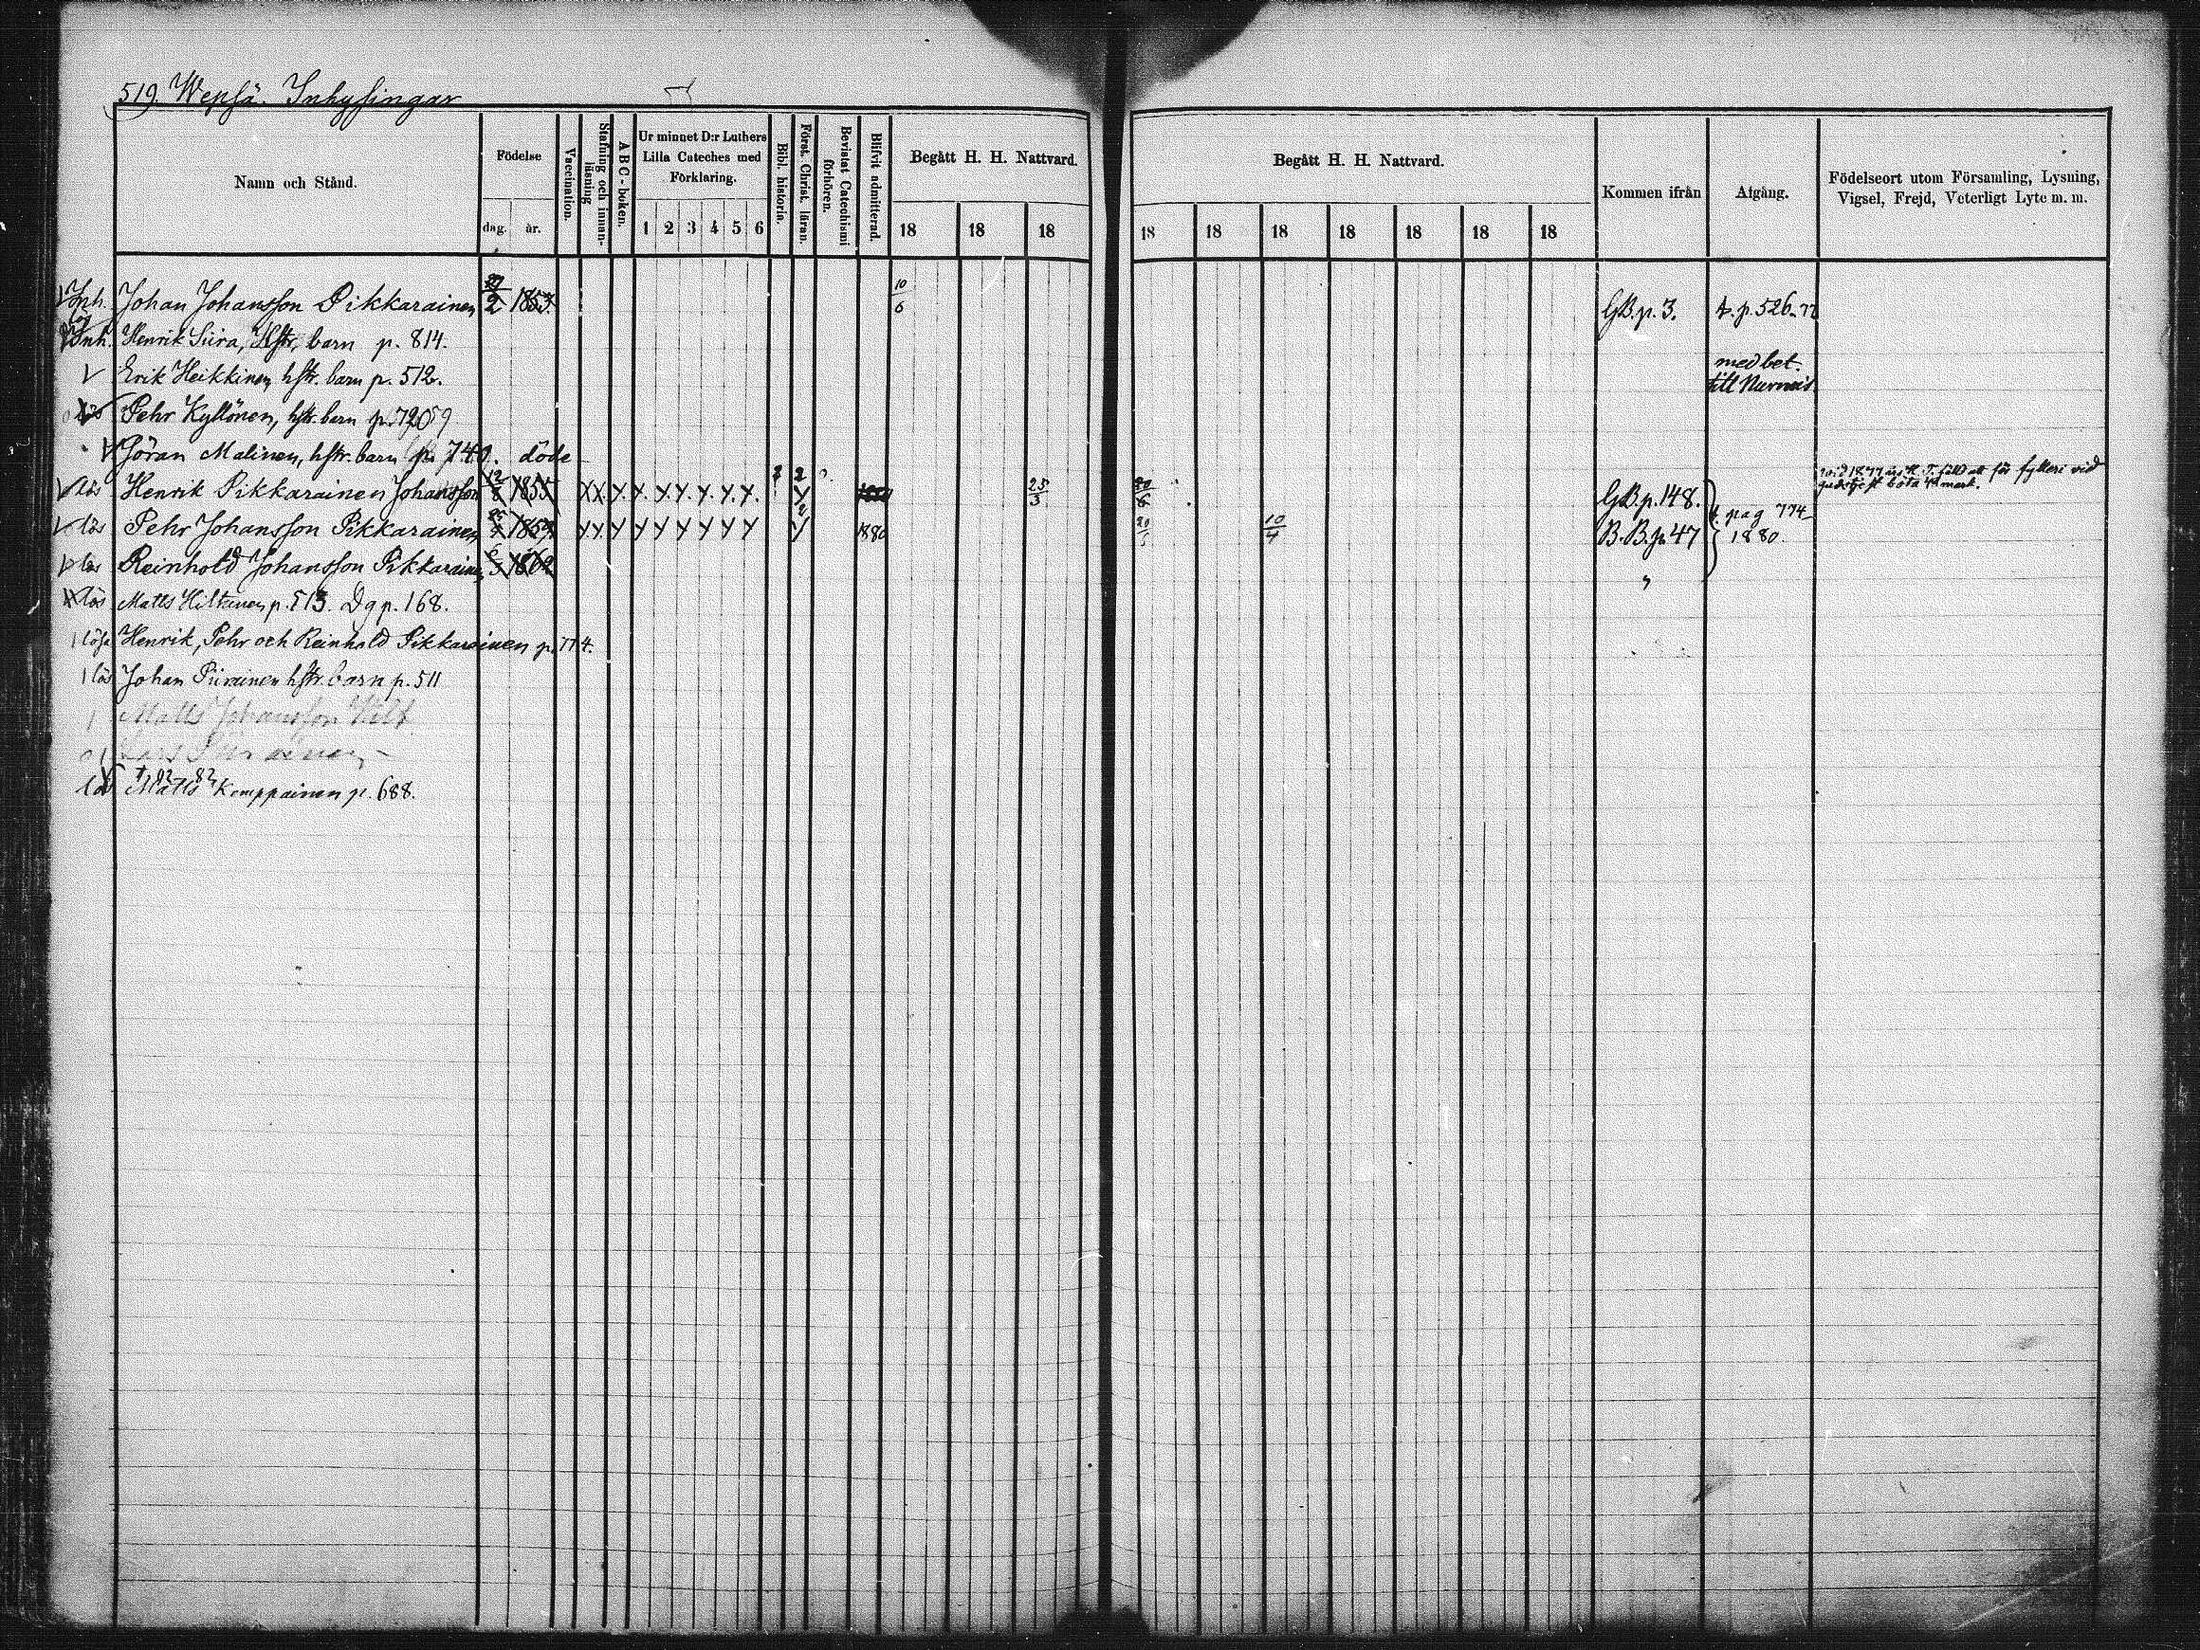 519. Wepsä. Inhysingar
Namn och Stånd.
Födelse
dag. år.
Vaccination.
Stafning och innanläsning
A B C-boken.
Ur minnet D:r Luthers Lilla Cateches med Förklaring.
1 2 3 4 5 6
Bibl. historia.
Först. Christ. läran.
Bevistat Catechismi förhören.
Blifvit admitterad.
Begått H. H. Nattvard.
18 18 18
Begått H. H. Nattvard.
18 18 18 18 18 18 18
Kommen ifrån
Afgång.
Födelseort utom Församling, Lysning,
Vigsel, Frejd, Veterligt Lyte m. m.
Inh. Johan Johansson Pikkarainen 2 1853. 10/6 GB.p. 3. p. 526.77
Inh. Henrik Siira, Hstr, barn p. 814.
Erik Heikkinen hstr. barn p. 512. med bet. till
lös Pehr Kyllönen, hstr. barn
Göran Malinen, hstr. barn 740. döde
lös Henrik Pikkarainen Johansson 12/8 1855 X X Y. Y. Y. Y. Y. Y. Y. 2 Y 25/3 GB.p. 148. för fylleri vid
böta mark.
lös Pehr Johansson Pikkarainen 1857 Y Y Y Y Y Y Y Y Y Y 1880 10/4 B.B.p. 47 pag 774 1880.
lös Reinhold Johansson Pikkarainen 1862 "
lös Matts Hiltunen p. 513. Dg p. 168.
lösa Henrik, Pehr och Reinhold Pikkarainen p. 774.
lös Johan Piirainen hstr. barn p. 511
Matts Johansson
lös Matts Kemppainen p. 688.